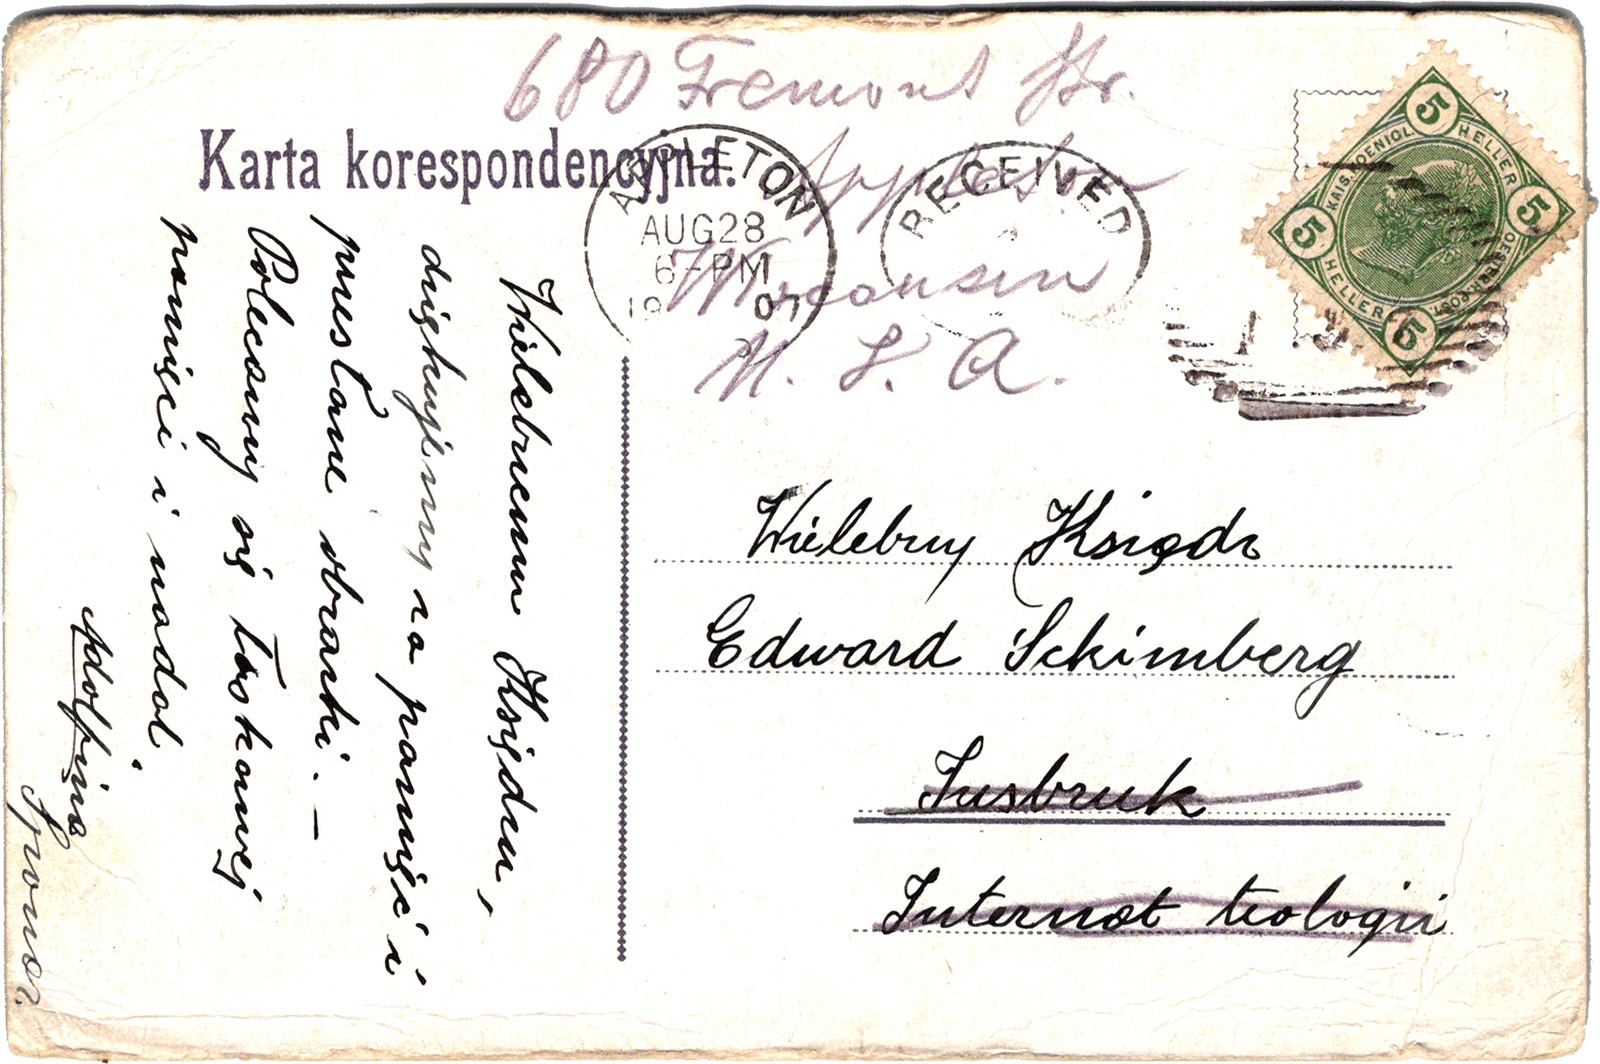 680 Fremont Str.
Karta korespondencyjna.
Appleton
Wisconsin
U. S. A.
APPLETON
AUG 28
6-PM
1907
RECEIVED
5 HELLER 5
5 HELLER 5
Wielebny Ksiądz
Edward Schimberg
Insbruk
Internat teologii
Wielebnemu Księdzu,
dziękujemy za pamięć i
przesłane obrazki. —
Polecamy się łaskawej
pamięci i nadal.
Adolfina